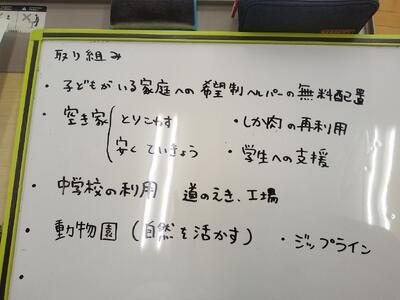 取り組み
・子どもがいる家庭への希望制ヘルパーの無料配置
・空き家 とりこわす
安くていきょう
・しか肉の再利用
・学生への支援
・中学校の利用 道のえき、工場
動物園(自然を活かす)
・ジップライン